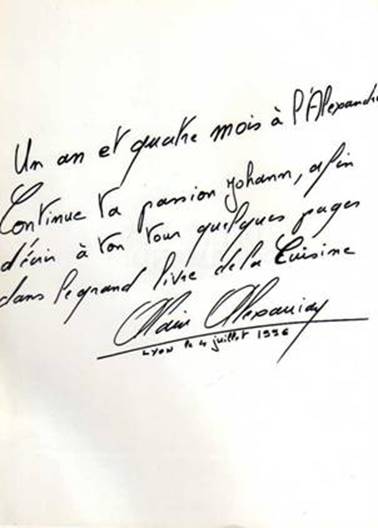 Un an et quatre mois à l'Alexandr
Continue ta passion Johann, afin
d'écrir à ton tour quelques pages
dans le grand livre de la Cuisine
Alain Alexanian
Lyon le 4 juillet 1996